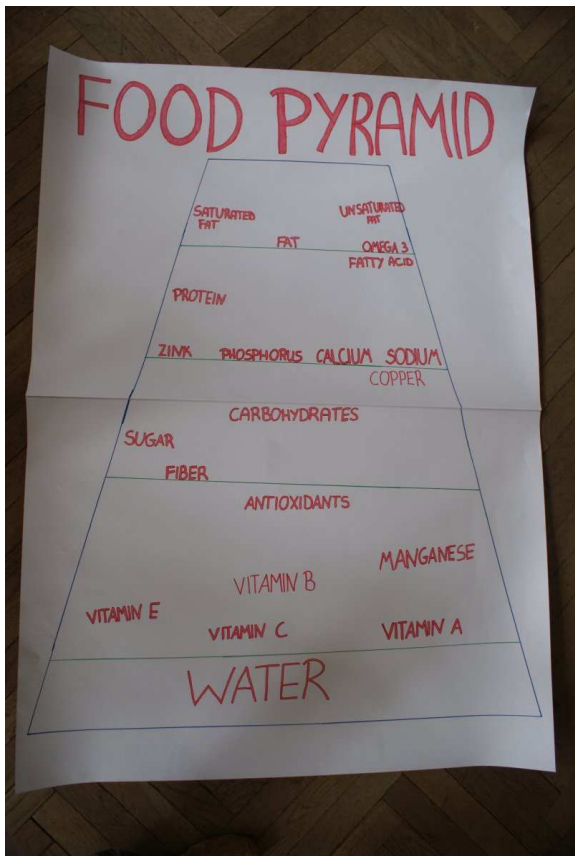 FOOD PYRAMID
SATURATED FAT
UNSATURATED FAT
FAT
OMEGA 3 FATTY ACID
PROTEIN
ZINK PHOSPHORUS CALCIUM SODIUM
COPPER
CARBOHYDRATES
SUGAR
FIBER
ANTIOXIDANTS
MANGANESE
VITAMIN B
VITAMIN E
VITAMIN C
VITAMIN A
WATER